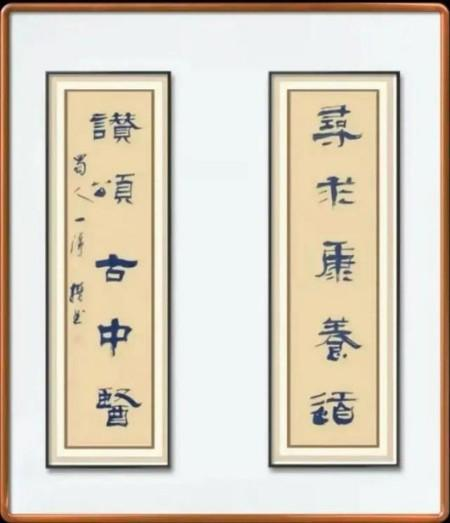 尋求康養道
讚頌古中醫
蜀人一
書